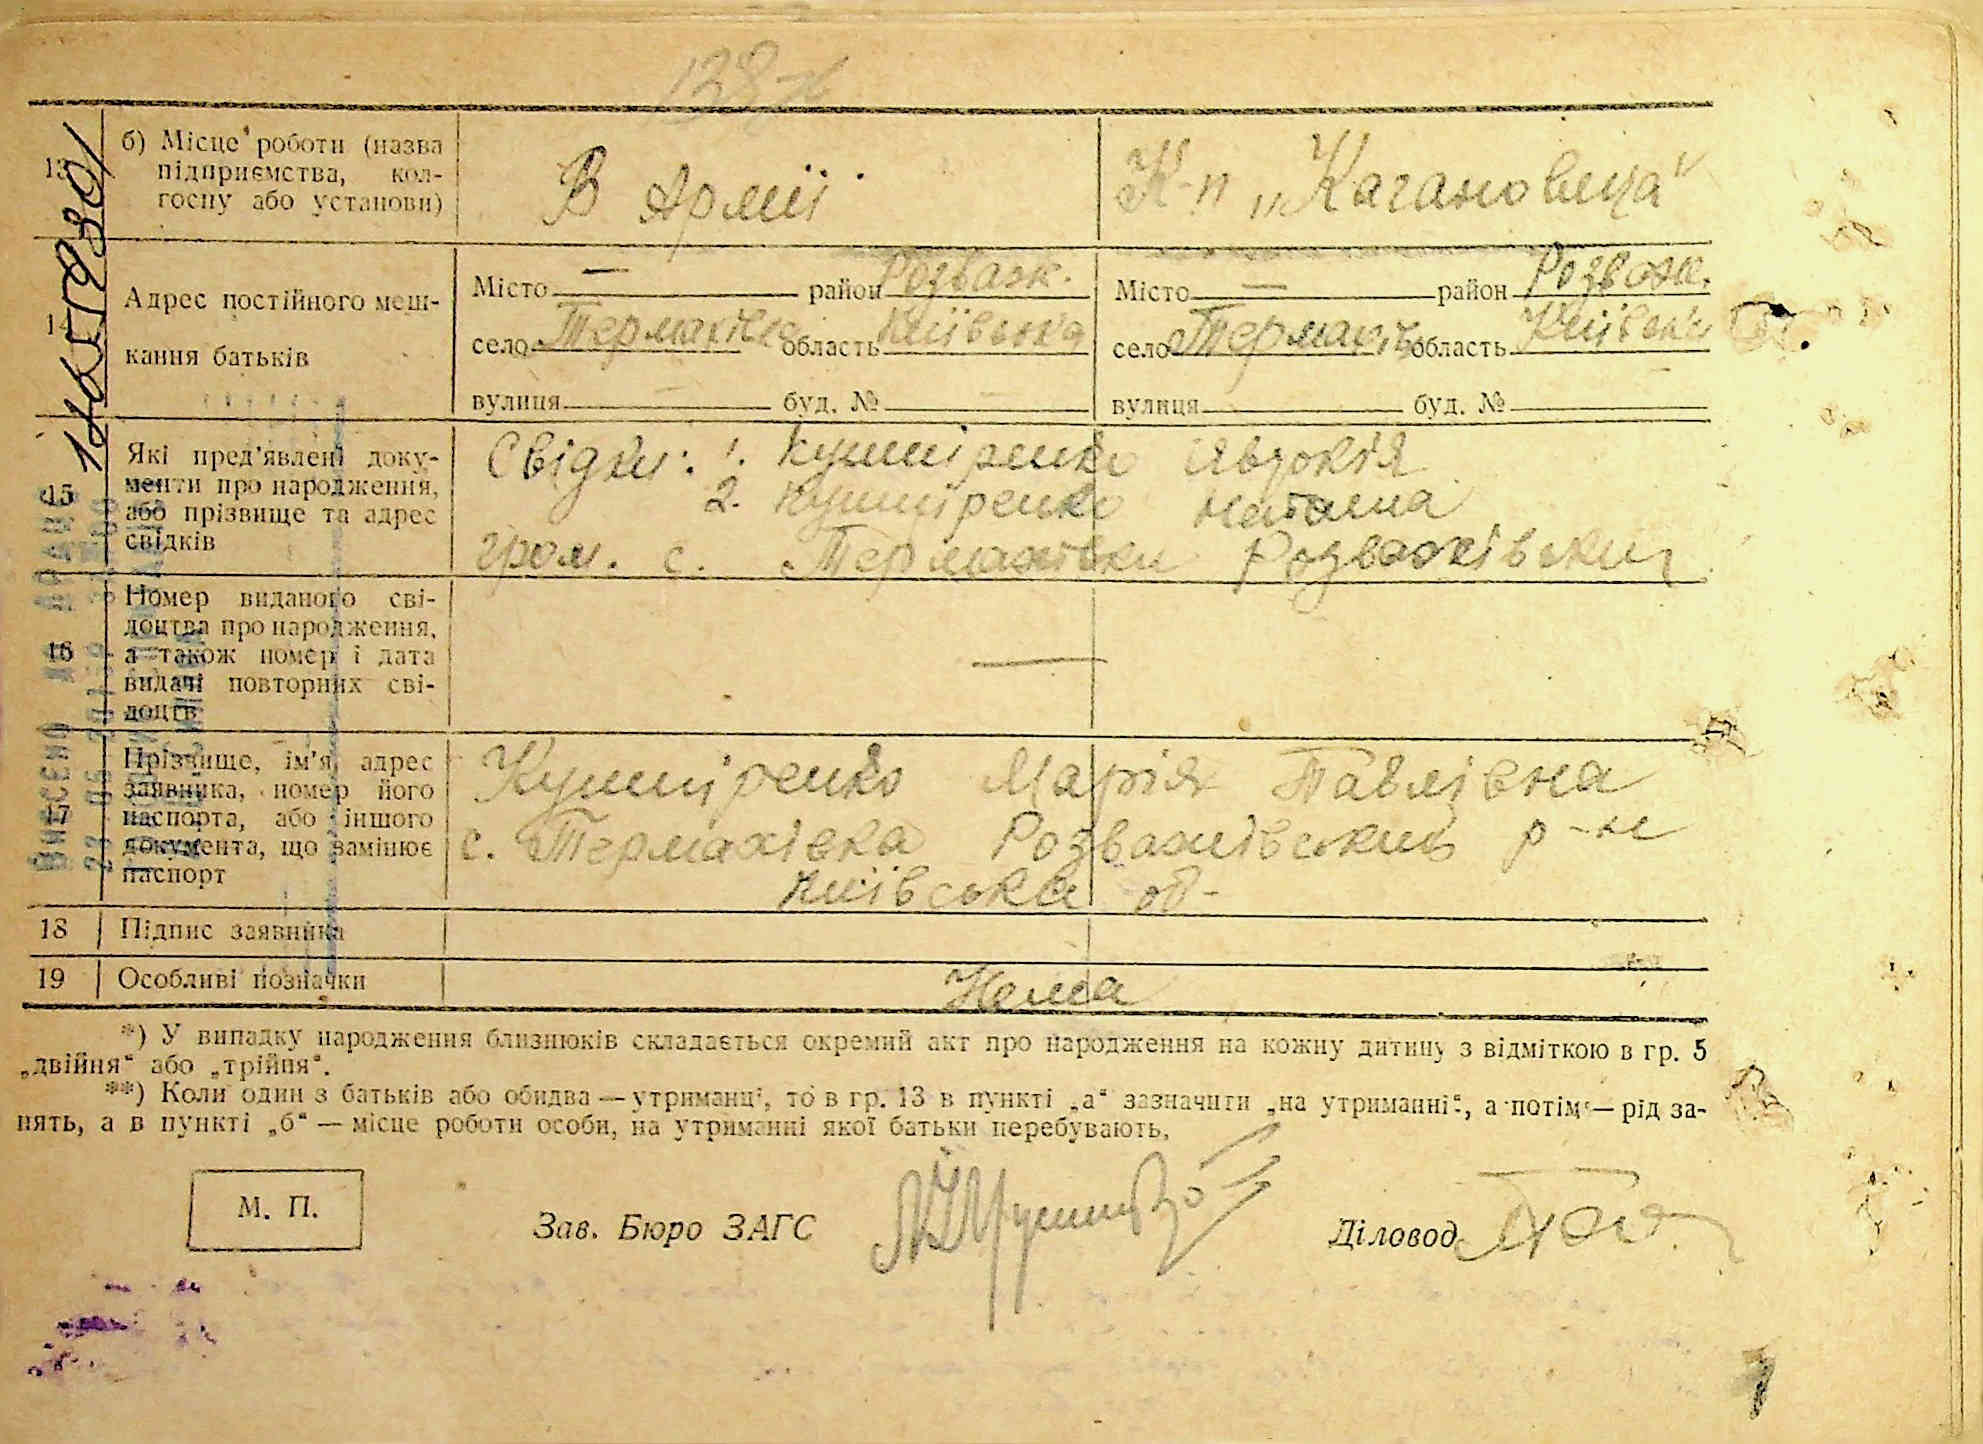 13
б) Місце роботи (назва
підприємства, кол-
госпу або установи)
В Армії
К-п „Кагановича"
14
Адрес постійного меш-
кання батьків
Місто — район Розваж.
село Термахівка область Київська
вулиця буд. №
Місто — район Розваж.
село Термахів область Київська
вулиця буд. №
15
Які пред'явлені доку-
менти про народження,
або прізвище та адрес
свідків
Свідки: 1. Кушніренко Явдокія
2. Кушніренко Наталка
гром. с. Термахівки Розважівськ
16
Номер виданого сві-
доцтва про народження,
а також номер і дата
видачі повторних сві-
доцтв
—
17
Прізвище, ім'я, адрес
заявника, номер його
паспорта, або іншого
документа, що замінює
паспорт
Кушніренко Марія Павлівна
с. Термахівка Розважівський р-н
Київська об-
18 Підпис заявника
19 Особливі позначки
Нема
*) У випадку народження близнюків складається окремий акт про народження на кожну дитину з відміткою в гр. 5
„двійня“ або „трійня“.
**) Коли один з батьків або обидва — утриманці, то в гр. 13 в пункті „а“ зазначити „на утриманні“, а потім — рід за-
нять, а в пункті „б“ — місце роботи особи, на утриманні якої батьки перебувають.
М. П.
Зав. Бюро ЗАГС
Діловод
ВНЕСЕНО ДО ДРАЦС